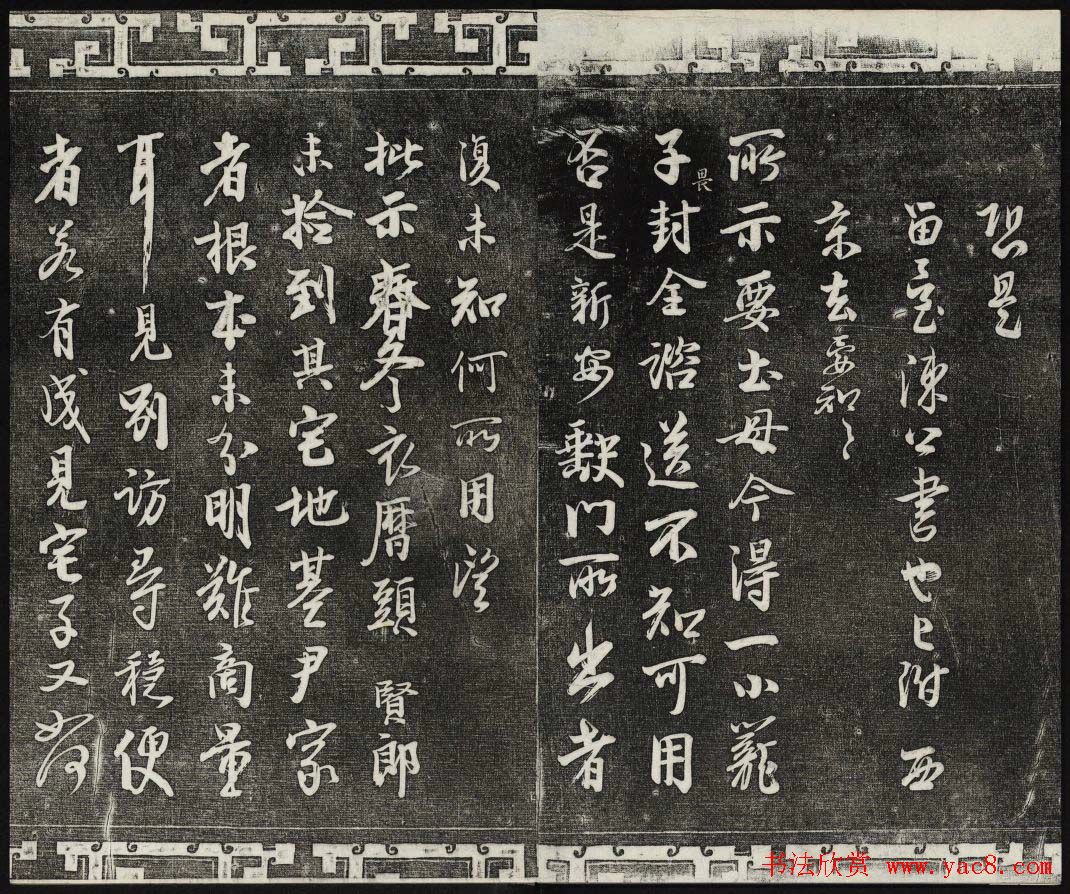 恐是
留臺陳公書也已附西
京去要知〻
所示要土母今得一小籠
子封全諮送不知可用
畏
否是新安歙門所出者
復未知何所用望
批示春冬衣曆頭賢郎
未拾到其宅地基尹家
者根本未分明難商量
耳見別訪尋穩便
者若有成見宅子又如何
书法欣赏 www.yac8.com